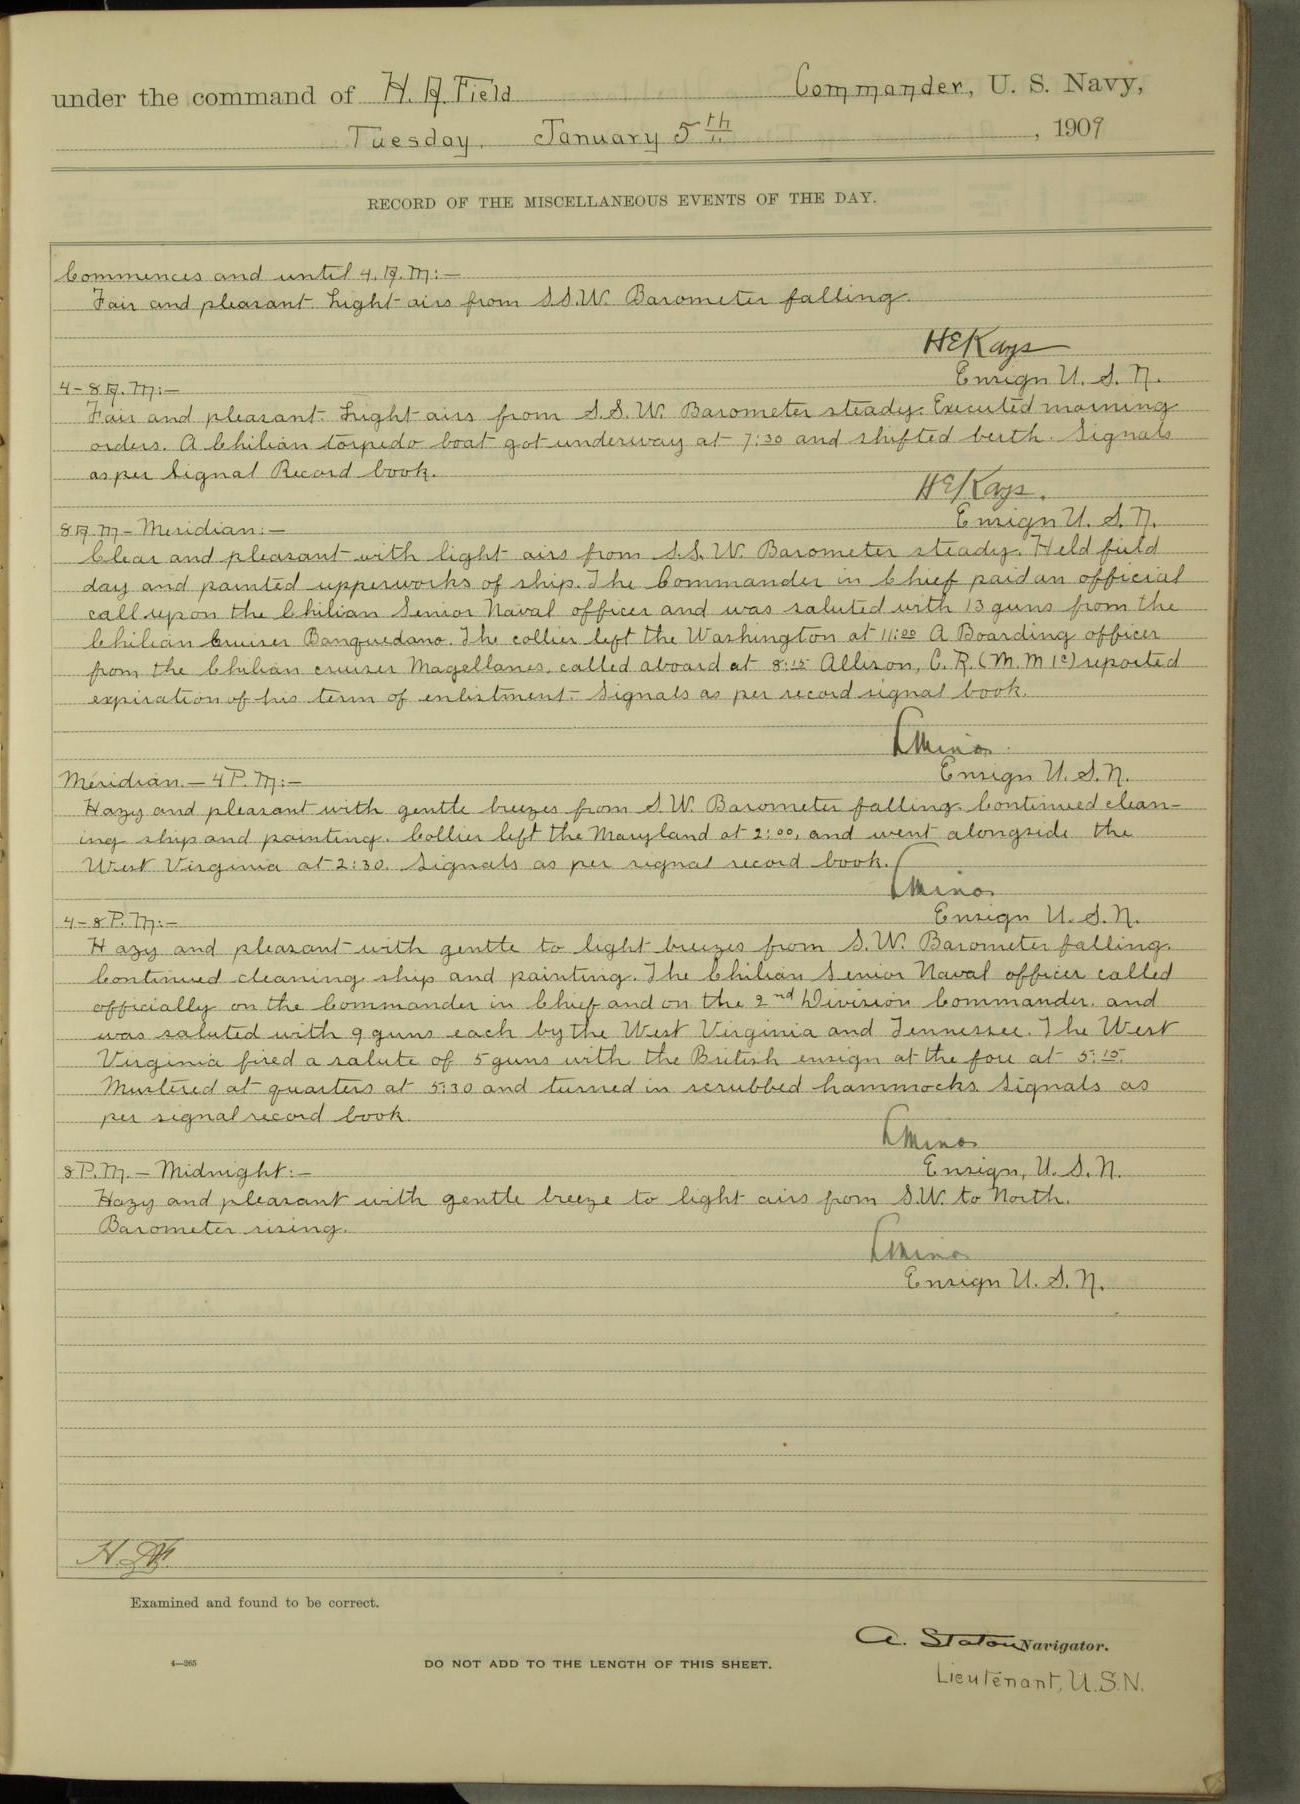 under the command of H. A. Field Commander, U. S. Navy,
Tuesday, January 5th, 1909
RECORD OF THE MISCELLANEOUS EVENTS OF THE DAY.
Commences and until 4. A. M:—
Fair and pleasant. Light airs from S.S.W. Barometer falling.
H E Kays
Ensign U. S. N.
4-8 A. M:—
Fair and pleasant. Light airs from S. S. W. Barometer steady. Executed morning
orders. A Chilian torpedo boat got underway at 7:30 and shifted berth. Signals
as per Signal Record book.
H E Kays.
Ensign U. S. N.
8 A. M - Meridian:—
Clear and pleasant with light airs from S. S. W. Barometer steady. Held field
day and painted upperworks of ship. The Commander in Chief paid an official
call upon the Chilian Senior Naval officer and was saluted with 13 guns from the
Chilian Cruiser Banquedano. The collier left the Washington at 11:00 A Boarding officer
from the Chilian cruiser Magellanes, called aboard at 8:15 Allison, C. R. (M. M 1c) reported
expiration of his term of enlistment. Signals as per record signal book.
L Minor
Ensign U. S. N.
Meridian.— 4 P. M:—
Hazy and pleasant with gentle breezes from S. W. Barometer falling. Continued clean-
ing ship and painting. Collier left the Maryland at 2:00, and went alongside the
West Virginia at 2:30. Signals as per signal record book.
L Minor
Ensign U. S. N.
4-8 P. M:—
Hazy and pleasant with gentle to light breezes from S. W. Barometer falling.
Continued cleaning ship and painting. The Chilian Senior Naval officer called
officially on the Commander in Chief and on the 2nd Division Commander. and
was saluted with 9 guns each by the West Virginia and Tennessee. The West
Virginia fired a salute of 5 guns with the British ensign at the fore at 5:15.
Mustered at quarters at 5:30 and turned in scrubbed hammocks. Signals as
per signal record book.
L Minor
Ensign, U. S. N.
8 P. M. — Midnight:—
Hazy and pleasant with gentle breeze to light airs from S. W. to North.
Barometer rising.
L Minor
Ensign U. S. N.
H. A. F.
Examined and found to be correct.
A. Staton Navigator.
4—265 DO NOT ADD TO THE LENGTH OF THIS SHEET.
Lieutenant, U. S. N.